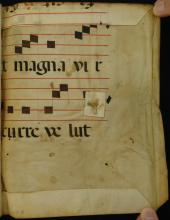 t magna vi r
curre ve lut